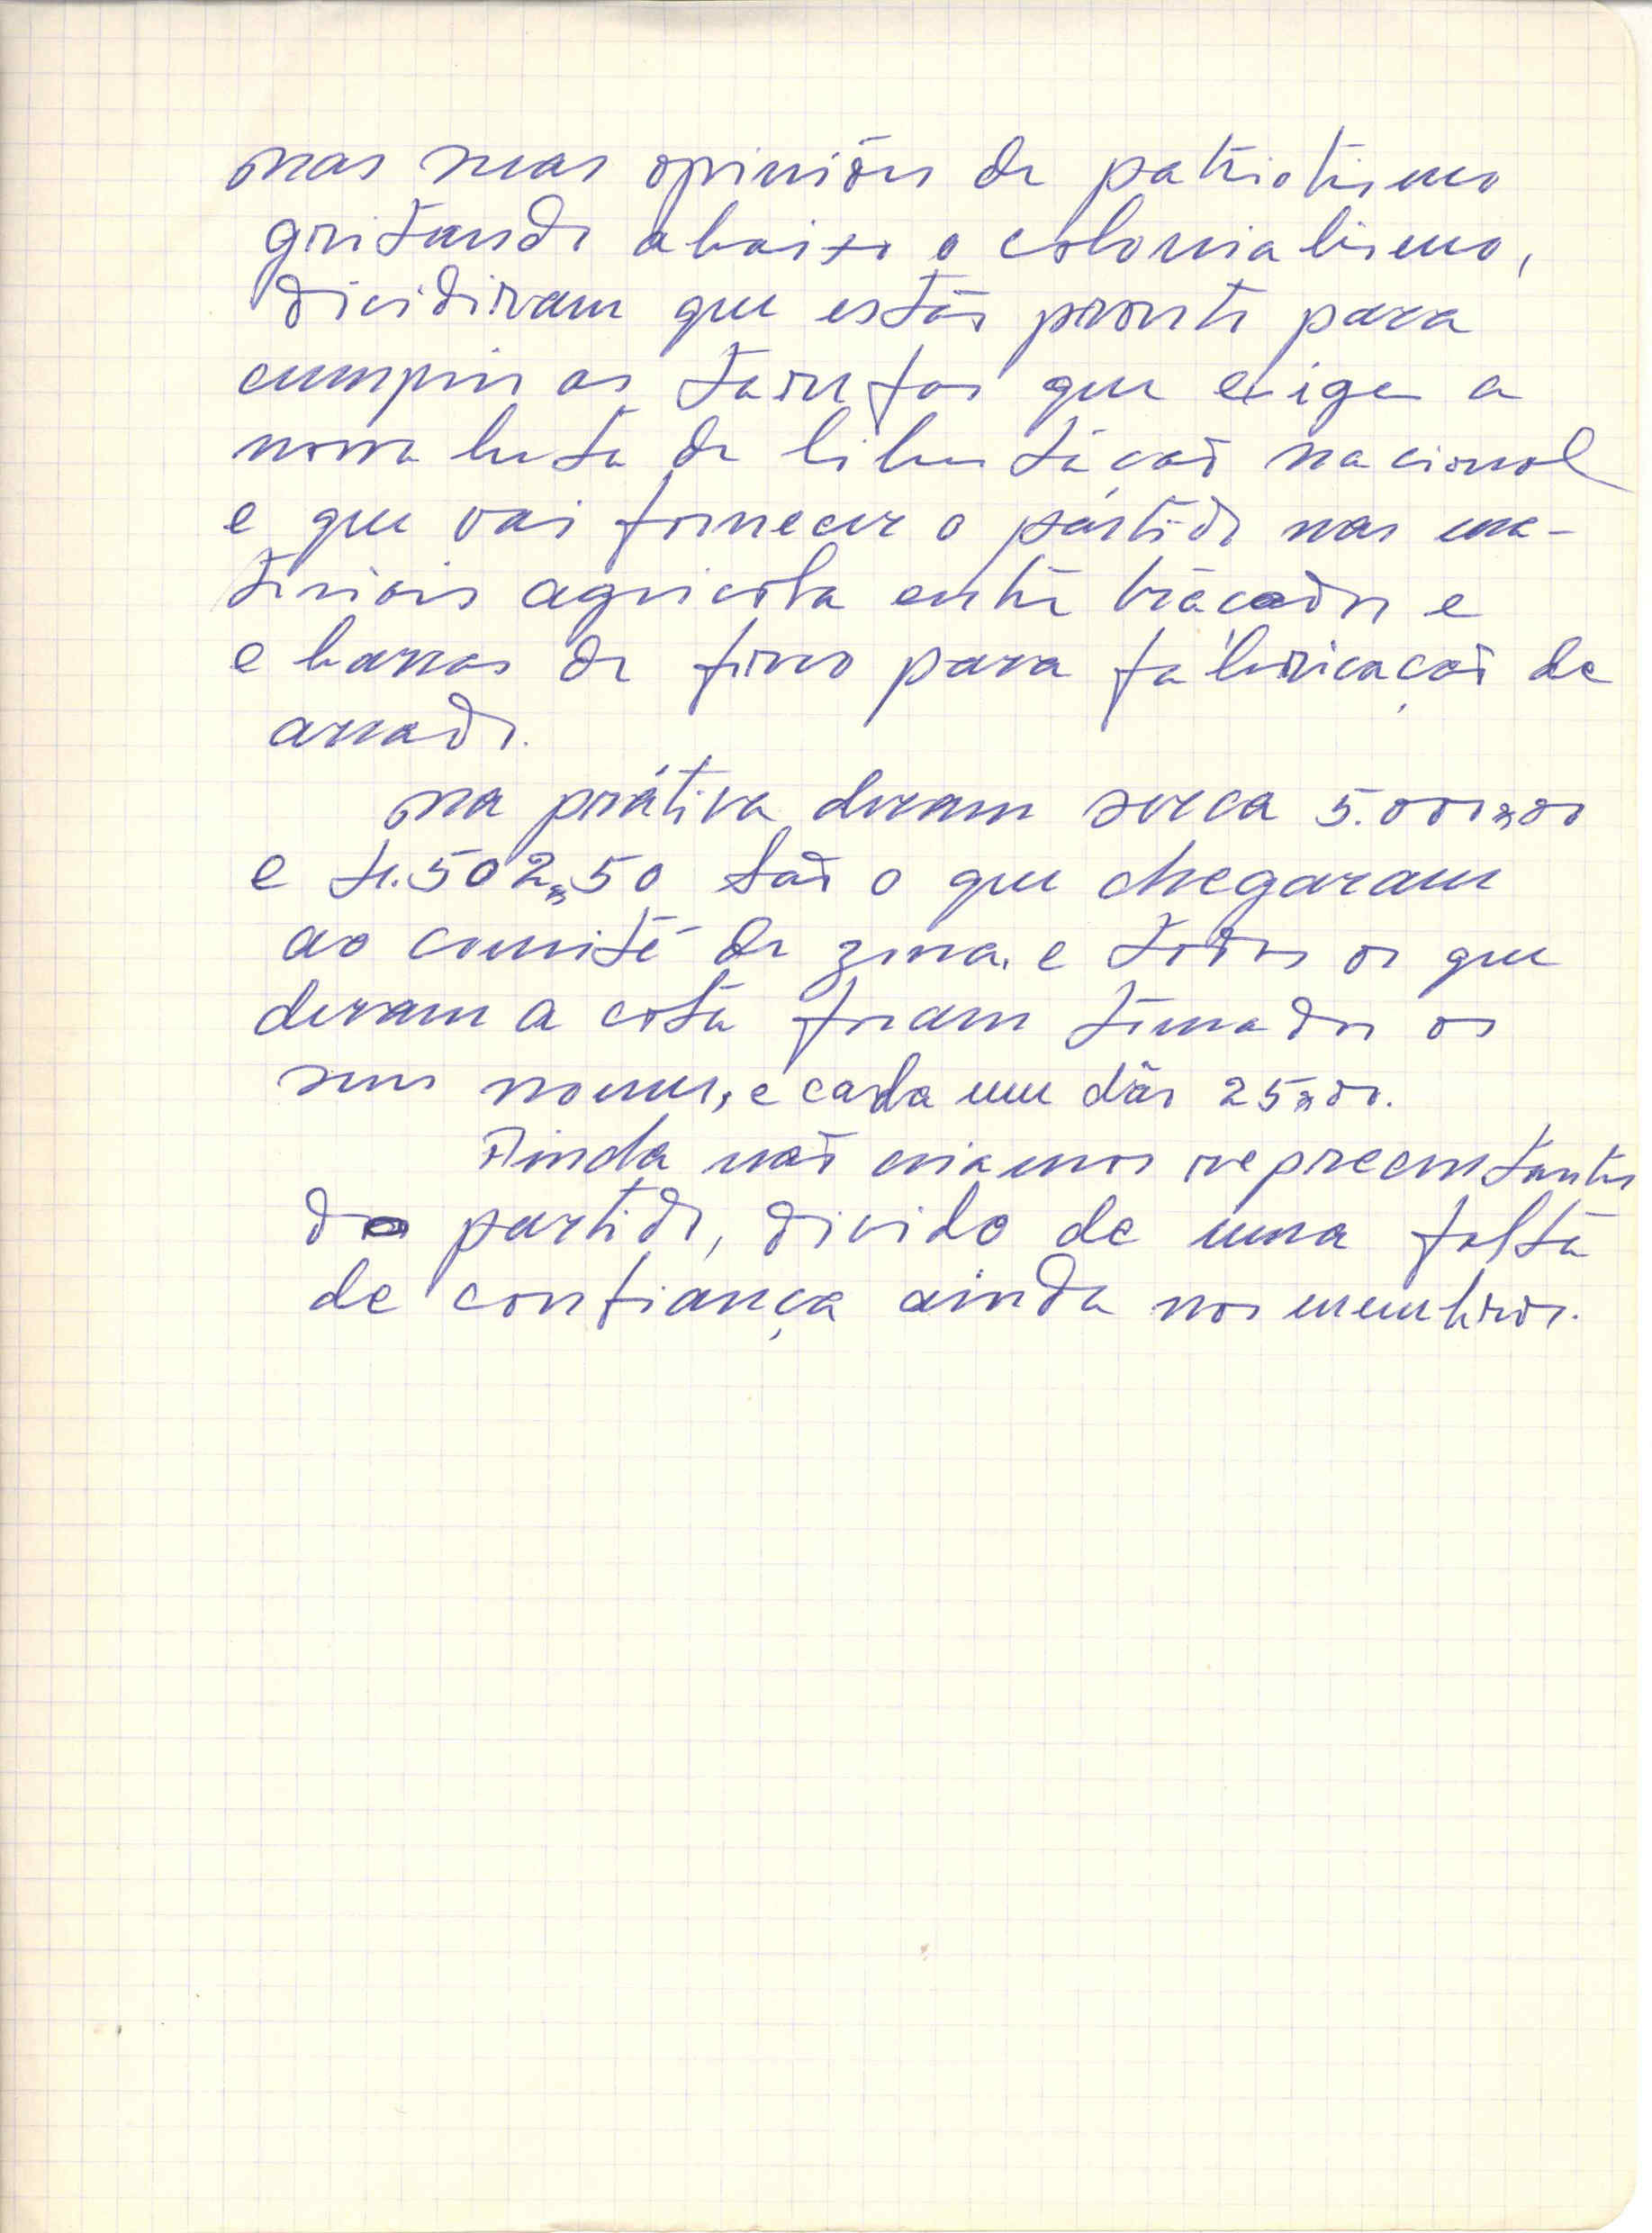 nas suas opiniões de patriotismo
gritando abaixo o colonialismo,
dicidiram que estão pronto para
cumprir as tarefas que exige a
nossa luta de libertação nacional
e que vai fornecer o partido nas ma-
teriais agricola entre traçados e
e barras de ferro para fabricação de
arrado.
na prática deram serca 5.000,00
e 4.502,50 são o que chegaram
ao comité de zona. e todos os que
deram a cota foram tomados os
seus nomes, e cada um dão 25,00.
Ainda não criamos repreentantes
do partido, divido de uma falta
de confiança ainda nos membros.